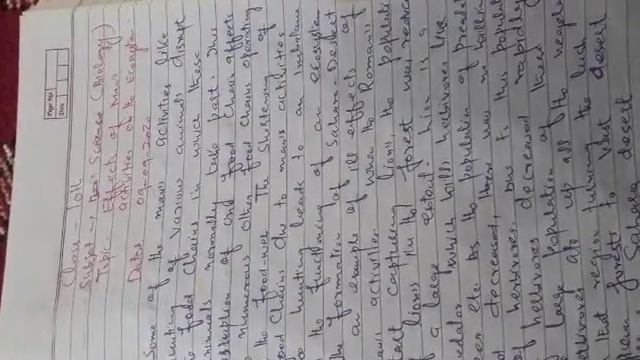 Page No.
Date
Class - 10th
Subject → Science (Biology)
Topic Effects of man
activities on the Ecosystem
Date 09-09-2020
Some of the man's activities like
hunting of various animals disrupt
the food chains in which these
animals normally take part. This
disruption of one food chain affects
numerous other food chains operating
the food-web. The shortening of
food chains due to man's activities
hunting leads to an imbalance
the functioning of an ecosystem
The formation of Sahara Desert
an example of ill effects of
activities. When the Romans
capturing lions, the populati
lions in the forest was reduce
a large extent. Lion is a
predator which kills herbivores like
deer etc. As the population of predat
decreased, there was no killing
of herbivores. Due to this the populat
of herbivores increased rapidly
large population of these
herbivores ate up all the vegeta
that region turning the lush
green forests to vast desert
Sahara desert